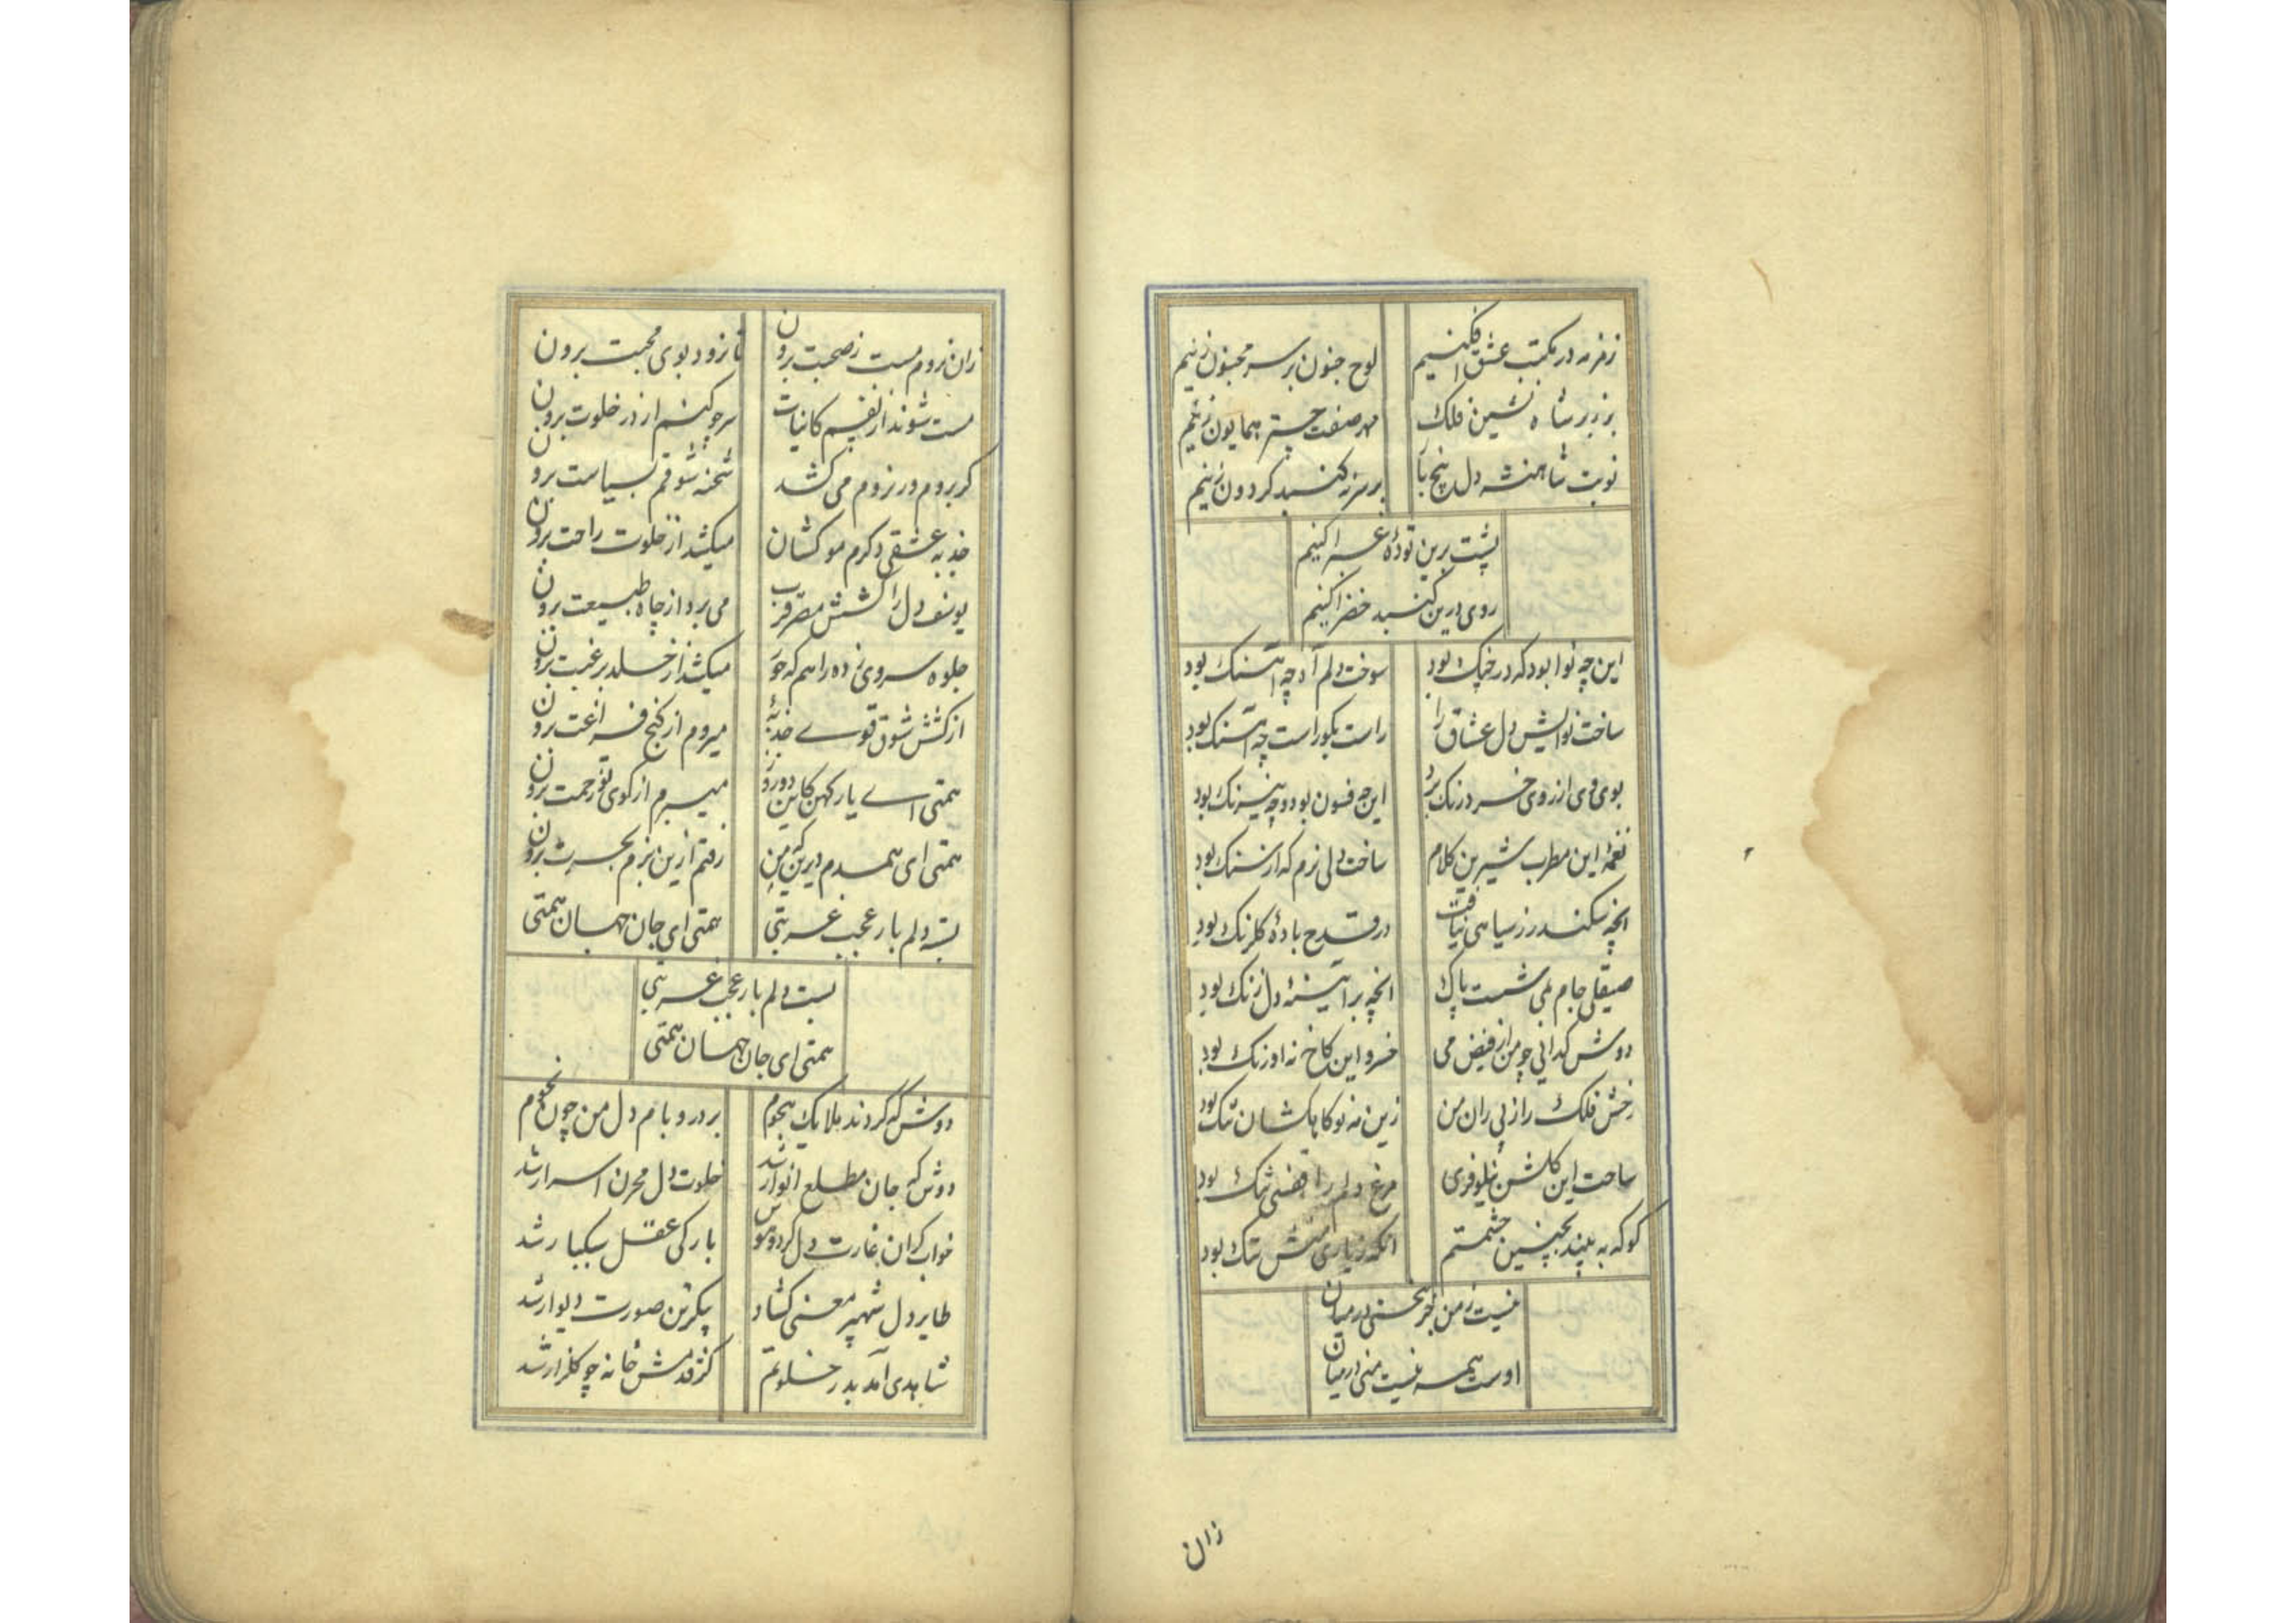 زمزمه در مکتب عشق افکنیم لوح جنون بر سر مجنون زنیم
بر زبر شاه نشین فلک مهر صفت چتر همایون زنیم
نوبت شاهنشه دل پنج با بر سر نه کنبد کردون زنیم
پشت برین تودهٔ غبرا کنیم
روی درین کنبد خضرا کنیم
این چه نوا بود که در چنک بود سوخت دلم آه چه آهنک بود
ساخت نوایش دل عشاق را راست بکو راست چه آهنک بود
بوی می از روی خرد رنک برد این چه فسون بود و چه نیرنک بود
نغمهٔ این مطرب شیرین کلام ساخت دلی نرم که از سنک بود
انچه سکندر ز سیاهی نیافت در قدح بادهٔ کلرنک بود
صیقلی جام می شست پاک انچه بر آیینهٔ دل زنک بود
دوش کدائی چو من از فیض می خسرو این کاخ نه اورنک بود
رخش فلک را ز پی ران من زین مه نو کاهکشان تنک بود
ساحت این کلشن نیلوفری مرغ دلم را قفسی تنک بود
کو که به بیند بچنین حشمتم انکه ز یاری منش ننک بود
نیست ز من جز سخنی در میان
اوست همه نیست منی در میان
زان
زان نروم مست ز صحبت برون تا نرود بوی محبت برون
مست شوند از نفسم کائنات سر چو کنم از در خلوت برون
کر بروم ور نروم می کشد شحنه شوقم بسیاست برون
جذبه عشقی دکرم مو کشان میکشد از خلوت راحت برون
یوسف دل را کشش مصر قرب می برد از چاه طبیعت برون
جلوه سروی زده راهم که حور میکشد از خلد برغبت برون
از کشش شوق قوی جذبهٔ میروم از کنج فراغت برون
همتی ای یار کهن کاین دو روز میبرم از کوی تو زحمت برون
همتی ای همدم دیرین من رفتم ازین بزم بحسرت برون
بسته دلم بار عجب غربتی همتی ای جان جهان همتی
بست دلم بار عجب غربتی
همتی ای جان جهان همتی
دوش که کردند ملایک هجوم بر در و بام دل من چون نجوم
دوش که جان مطلع انوار شد خلوت دل مخزن اسرار شد
خواب کران غارت دل کرد و هوش بارکی عقل سبکبار شد
طایر دل شهپر معنی کشاد پیکر تن صورت دیوار شد
شاهدی آمد بدر خلوتم کز قدمش خانه چو کلزار شد